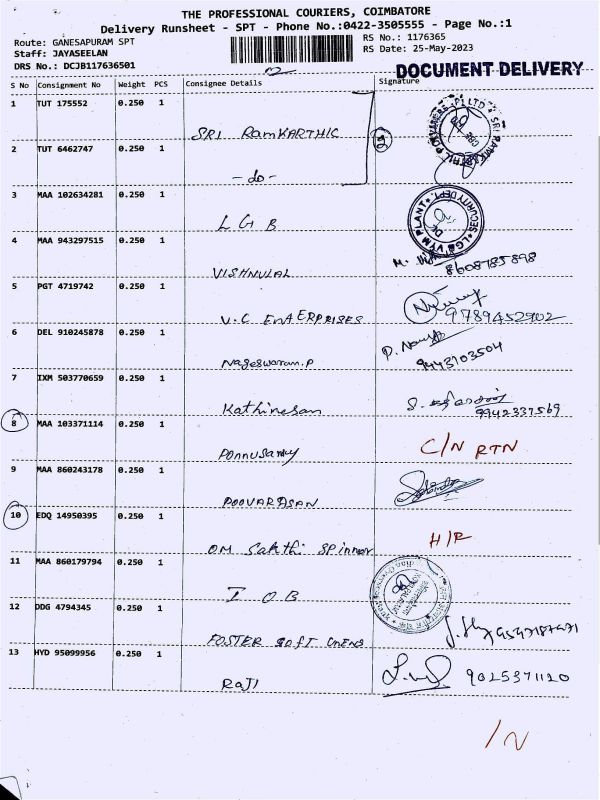 THE PROFESSIONAL COURIERS, COIMBATORE
Delivery Runsheet - SPT - Phone No.:0422-3505555 - Page No.:1
Route: GANESAPURAM SPT RS No.: 1176365
Staff: JAYASEELAN RS Date: 25-May-2023
DRS No.: DCJB117636501
DOCUMENT DELIVERY
S No Consignment No Weight PCS Consignee Details Signature
1 TUT 175552 0.250 1
SRI RAMKARTHIC
2 TUT 6462747 0.250 1
- do -
3 MAA 102634281 0.250 1
LGB
4 MAA 943297515 0.250 1
VISHNULAL 8608785898
5 PGT 4719742 0.250 1
V.C ENTERPRISES 9789452902
6 DEL 910245878 0.250 1
Nageswaran.P 9443103504
7 IXM 503770659 0.250 1
Kathiresan 9942337569
8 MAA 103371114 0.250 1
Ponnusamy C/N RTN
9 MAA 860243178 0.250 1
POOVARASAN
10 EDQ 14950395 0.250 1
OM Sakthi Spinner H/R
11 MAA 860179794 0.250 1
I O B
12 DDG 4794345 0.250 1
FOSTER
13 HYD 95099956 0.250 1
RAJI 9025371120
/N